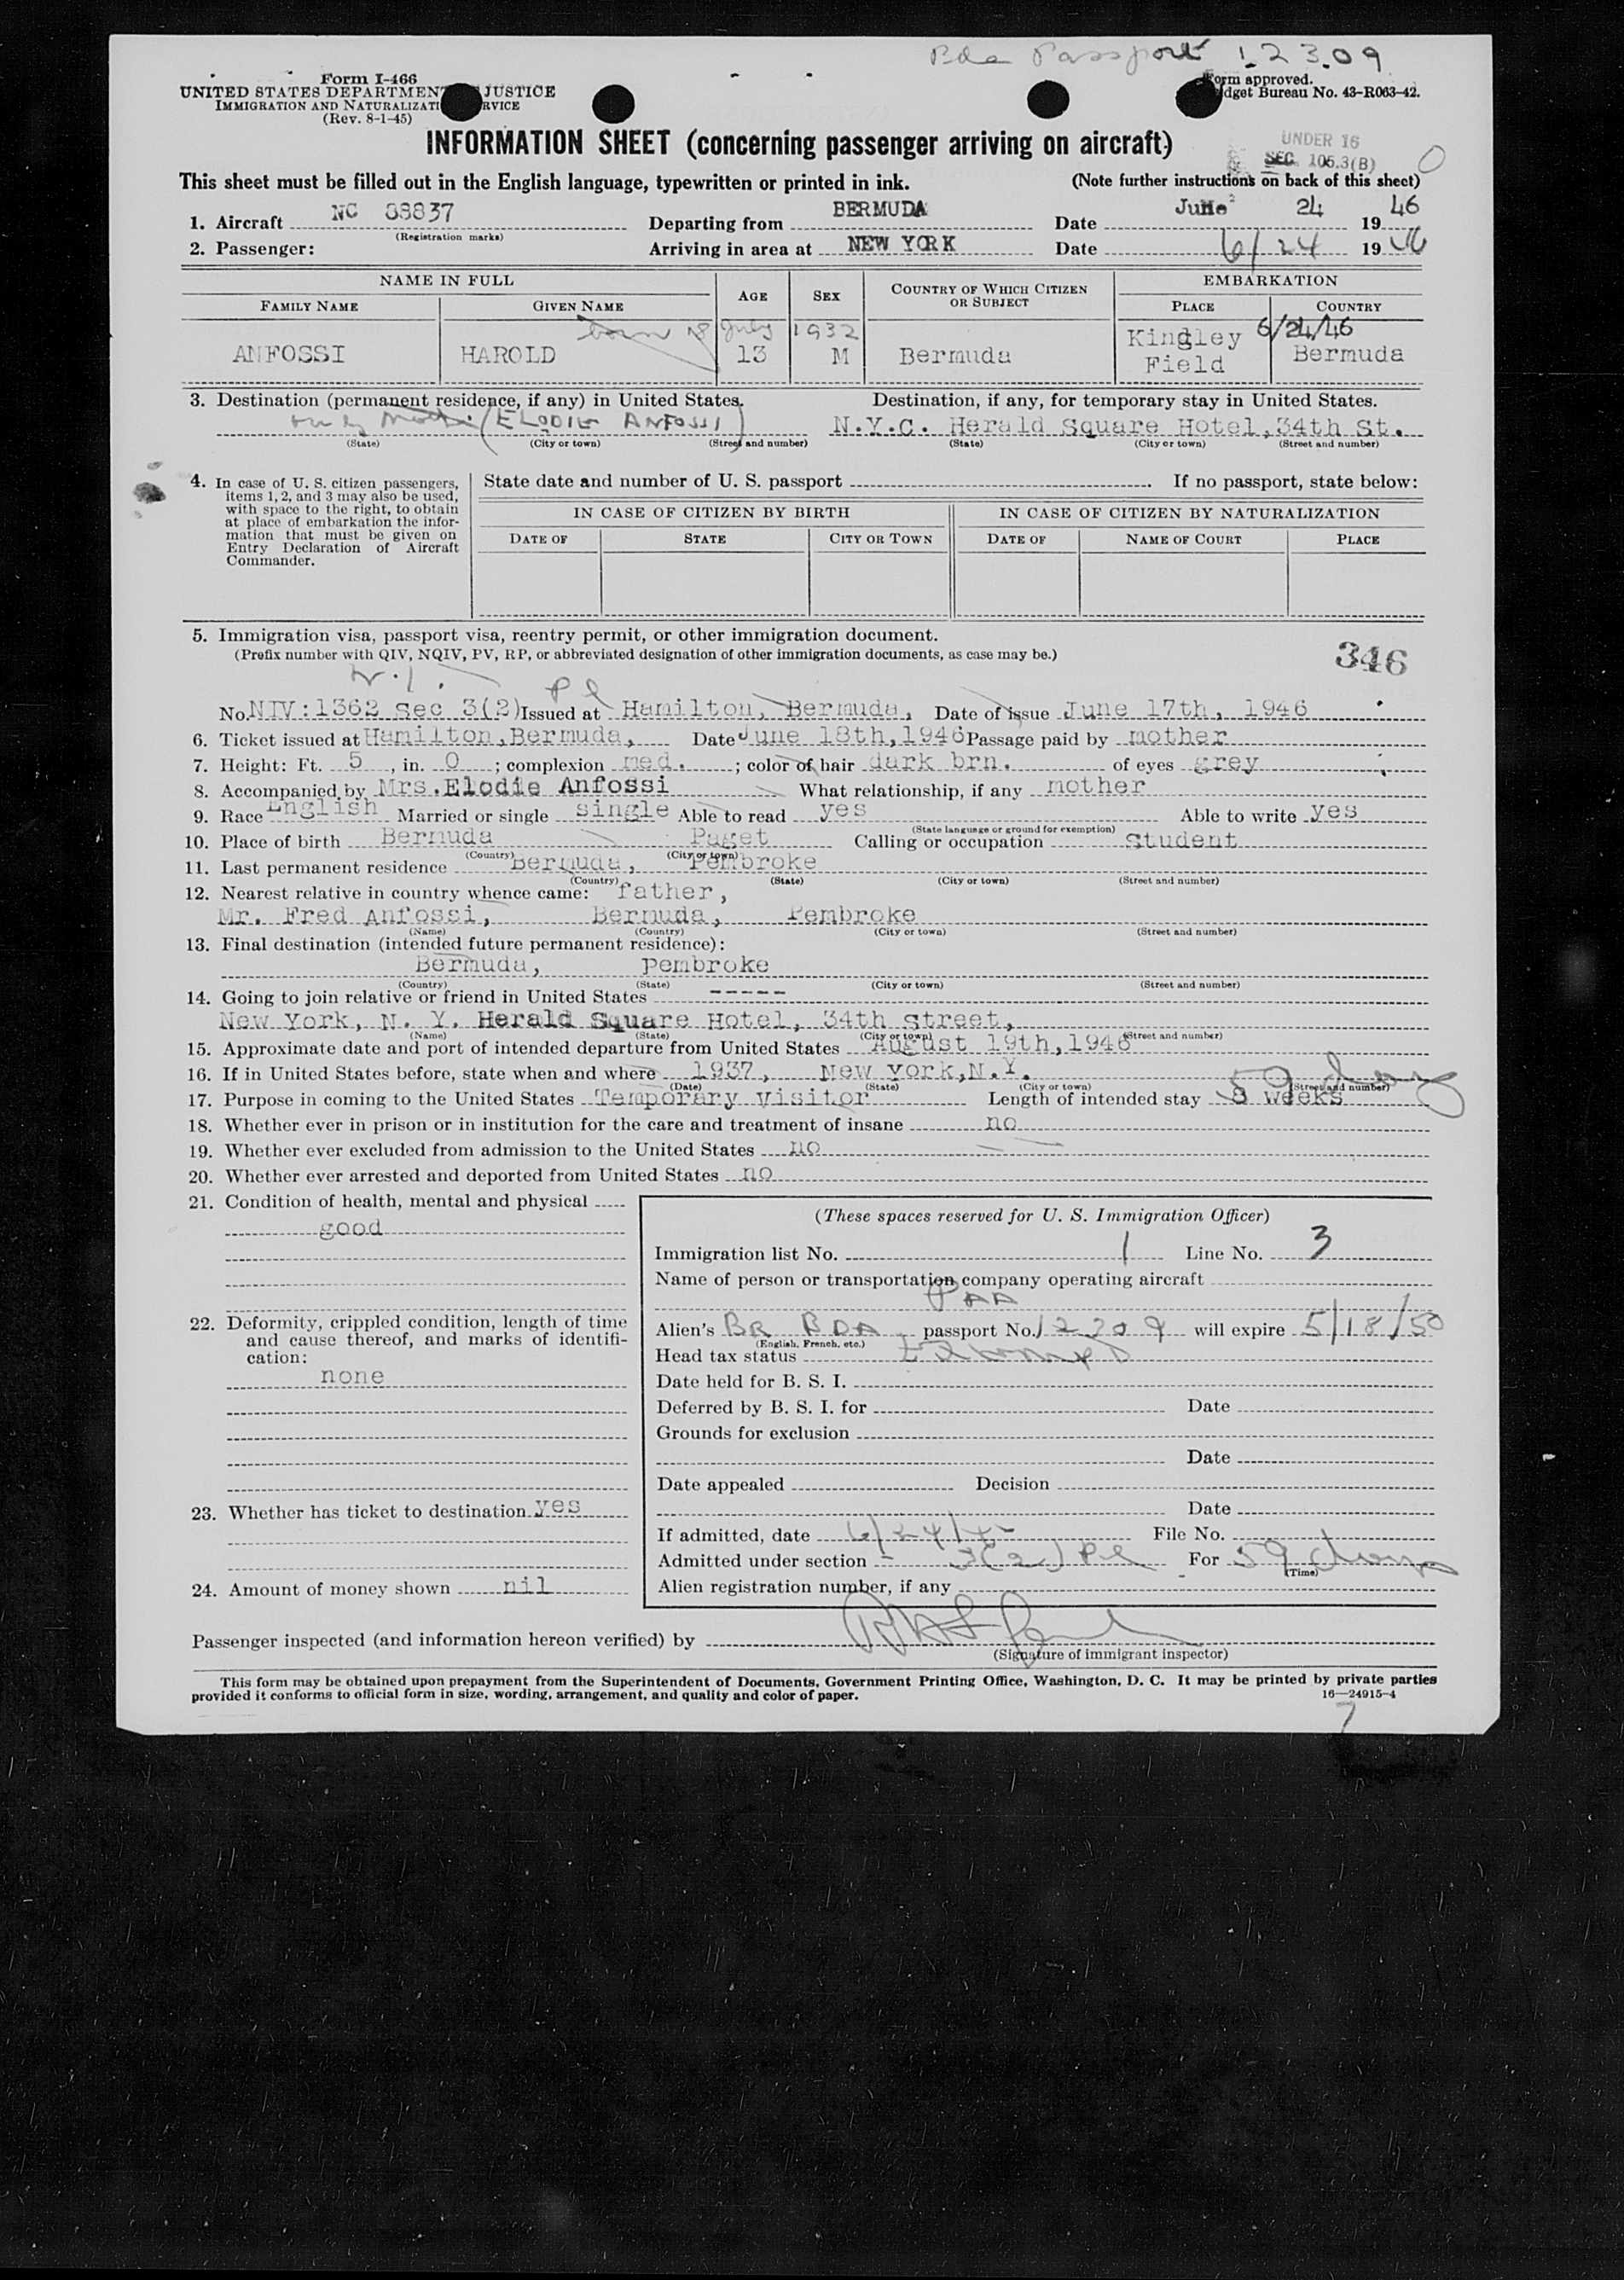 Bda Passport 12309
Form I-466
UNITED STATES DEPARTMENT JUSTICE
IMMIGRATION AND NATURALIZATI RVICE
(Rev. 8-1-45)
Form approved.
dget Bureau No. 43-R063-42.
INFORMATION SHEET (concerning passenger arriving on aircraft)
UNDER 16
SEC. 105.3(B)
This sheet must be filled out in the English language, typewritten or printed in ink. (Note further instructions on back of this sheet)
1. Aircraft NC 88837 (Registration marks) Departing from BERMUDA Date June 24 1946
2. Passenger: Arriving in area at NEW YORK Date 6/24 1946
NAME IN FULL AGE SEX COUNTRY OF WHICH CITIZEN OR SUBJECT EMBARKATION
FAMILY NAME GIVEN NAME PLACE COUNTRY
born 18 July 1932 6/24/46
ANFOSSI HAROLD 13 M Bermuda Kindley Field Bermuda
3. Destination (permanent residence, if any) in United States. Destination, if any, for temporary stay in United States.
(ELODIE ANFOSSI) N.Y.C. Herald Square Hotel, 34th St.
(State) (City or town) (Street and number) (State) (City or town) (Street and number)
4. In case of U. S. citizen passengers, items 1, 2, and 3 may also be used, with space to the right, to obtain at place of embarkation the information that must be given on Entry Declaration of Aircraft Commander.
State date and number of U. S. passport . If no passport, state below:
IN CASE OF CITIZEN BY BIRTH IN CASE OF CITIZEN BY NATURALIZATION
DATE OF STATE CITY OR TOWN DATE OF NAME OF COURT PLACE
5. Immigration visa, passport visa, reentry permit, or other immigration document.
(Prefix number with QIV, NQIV, PV, RP, or abbreviated designation of other immigration documents, as case may be.)
346
No. NIV:1362 Sec 3(2) Issued at Hamilton, Bermuda, Date of issue June 17th, 1946
6. Ticket issued at Hamilton, Bermuda, Date June 18th, 1946 Passage paid by mother
7. Height: Ft. 5, in. 0; complexion med.; color of hair dark brn. of eyes grey
8. Accompanied by Mrs. Elodie Anfossi What relationship, if any mother
9. Race English Married or single single Able to read yes Able to write yes
(State language or ground for exemption)
10. Place of birth Bermuda Paget Calling or occupation Student
(Country) (City or town)
11. Last permanent residence Bermuda, Pembroke
(Country) (State) (City or town) (Street and number)
12. Nearest relative in country whence came: father,
Mr. Fred Anfossi, Bermuda, Pembroke
(Name) (Country) (City or town) (Street and number)
13. Final destination (intended future permanent residence):
Bermuda, Pembroke
(Country) (State) (City or town) (Street and number)
14. Going to join relative or friend in United States -----
New York, N. Y. Herald Square Hotel, 34th Street,
(Name) (State) (City or town) (Street and number)
15. Approximate date and port of intended departure from United States August 19th, 1946
16. If in United States before, state when and where 1937, New York, N.Y.
(Date) (State) (City or town) (Street and number)
59 days
17. Purpose in coming to the United States Temporary Visitor Length of intended stay 8 weeks
18. Whether ever in prison or in institution for the care and treatment of insane no
19. Whether ever excluded from admission to the United States no
20. Whether ever arrested and deported from United States no
21. Condition of health, mental and physical
good
22. Deformity, crippled condition, length of time and cause thereof, and marks of identification:
none
23. Whether has ticket to destination yes
24. Amount of money shown nil
(These spaces reserved for U. S. Immigration Officer)
Immigration list No. 1 Line No. 3
Name of person or transportation company operating aircraft
PAA
Alien's BR BDA passport No. 12309 will expire 5/18/50
(English, French, etc.)
Head tax status
Date held for B. S. I.
Deferred by B. S. I. for Date
Grounds for exclusion
Date
Date appealed Decision
Date
If admitted, date 6/24/46 File No.
Admitted under section 3(2) Pl For 59 days
(Time)
Alien registration number, if any
Passenger inspected (and information hereon verified) by
(Signature of immigrant inspector)
This form may be obtained upon prepayment from the Superintendent of Documents, Government Printing Office, Washington, D. C. It may be printed by private parties
provided it conforms to official form in size, wording, arrangement, and quality and color of paper. 16—24915-4
7